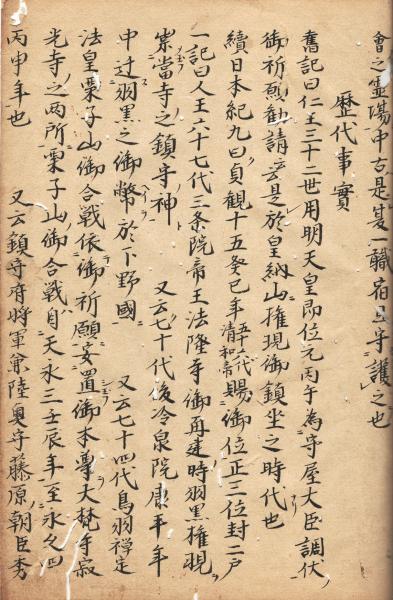 會之霊場中古是隻一職宿且守護之也
歴代事實
舊記曰仁王三十二世用明天皇即位元丙午為守屋大臣調伏
御祈願勧請云是於皇納山権現御鎮坐之時代也
續日本紀九曰貞観十五癸巳年五十六代清和帝賜御位正三位封二戸
一記曰人王六十七代三条院帝王法隆寺御再建時羽黒権現
崇當寺之鎮守神　又云七十代後冷泉院康平年
中辻羽黒之御幣於下野國　又云七十四代鳥羽禅定
法皇栗子山御合戦依御祈願安置御本尊大梵寺寂
光寺之两所栗子山御合戦自天永三壬辰年至永久四
丙申年也　又云鎮守府将軍兼陸奥守藤原朝臣秀